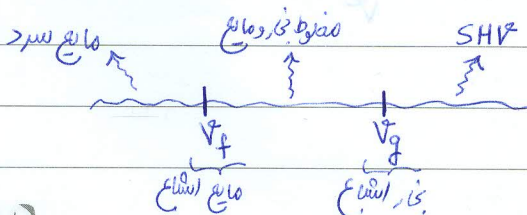 مایع سرد مخلوط بخار و مایع SHV
Vf Vg
مایع اشباع بخار اشباع